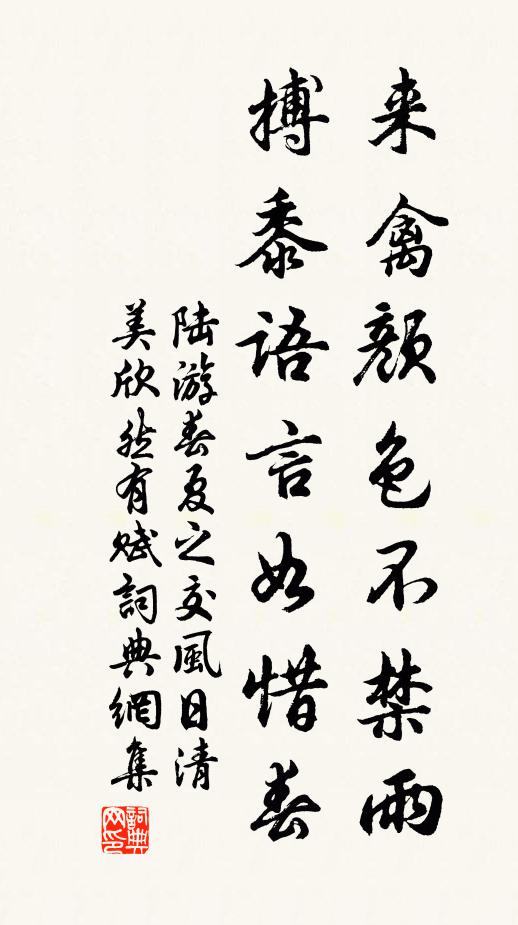 来禽顔色不禁雨
搏黍語言如惜春
陆游春夏之交風日清
美欣然有赋詞典網集
詞典
网印